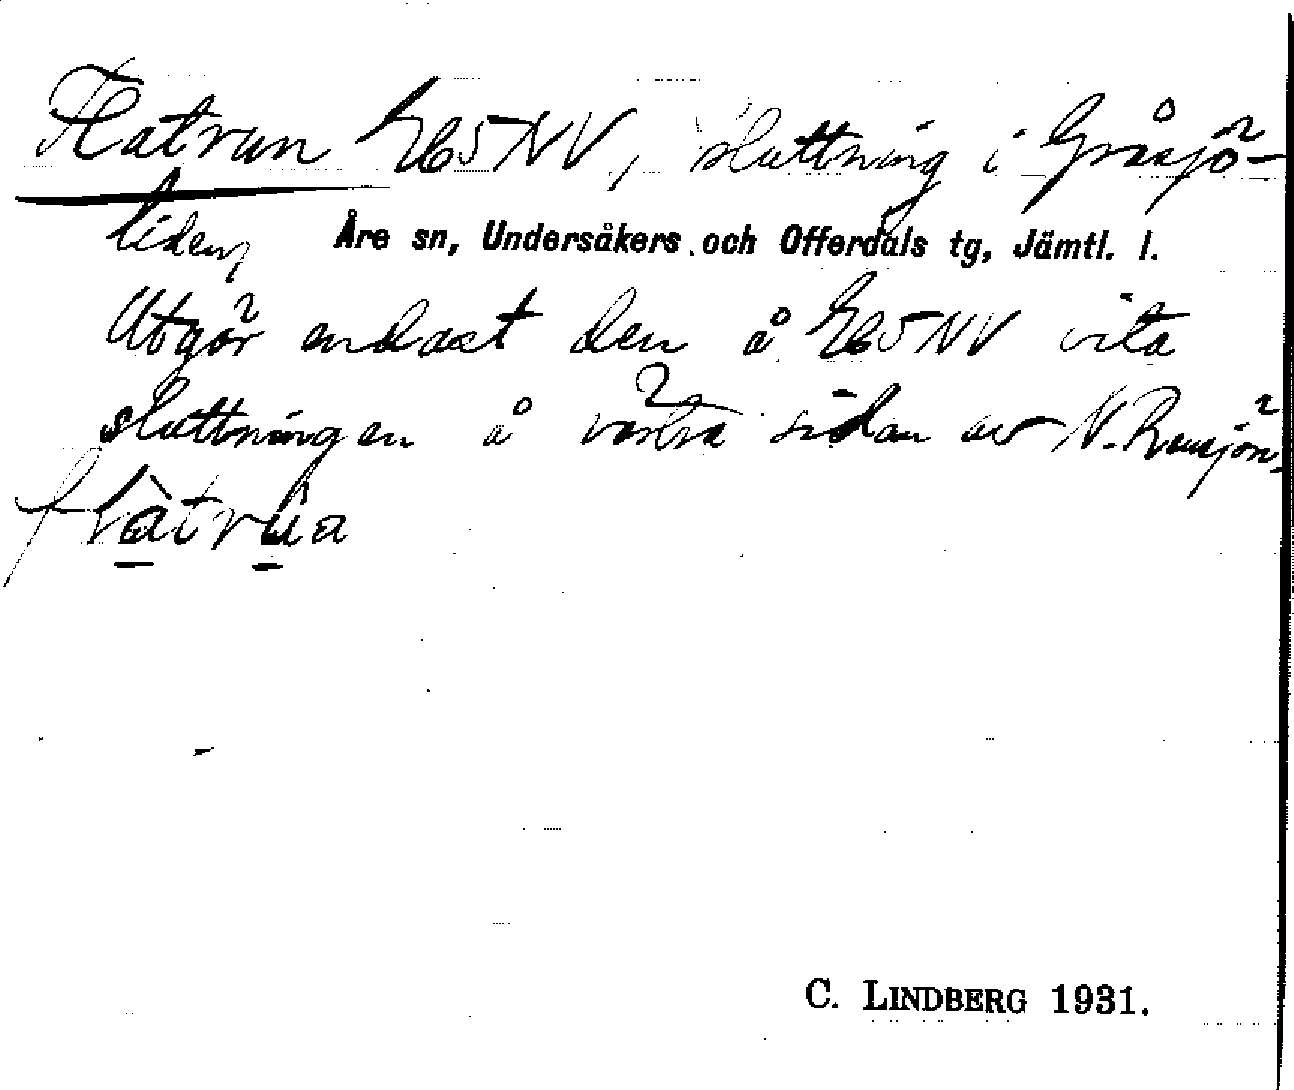 Flatrun 765 NV, sluttning i Gråsjö-
liden,
Åre sn, Undersåkers och Offerdals tg, Jämtl. l.
Utgör endast den å 765 NV vita
sluttningen å västra sidan av N. Rensjön,
flàtrûa
C. LINDBERG 1931.